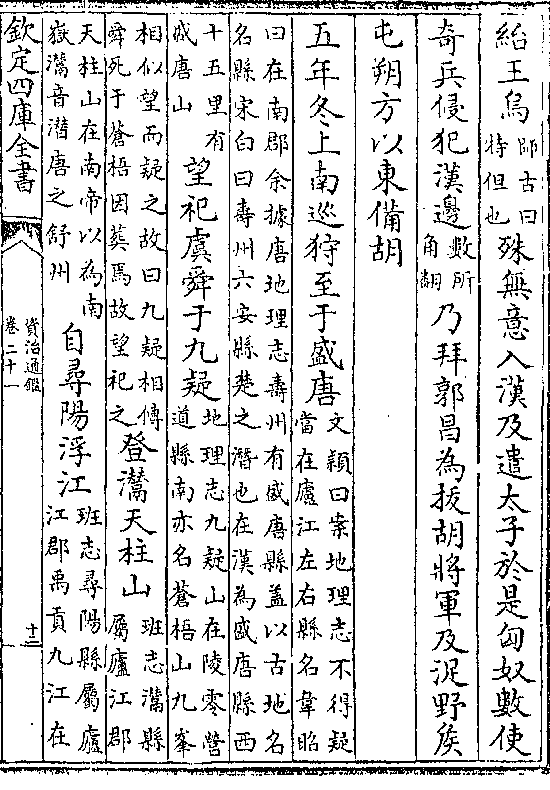 紿王烏師古曰特但也殊無意入漢及遣太子於是匈奴數使
奇兵侵犯漢邊數所角翻乃拜郭昌為拔胡將軍及浞野侯
屯朔方以東備胡
五年冬上南巡狩至于盛唐文穎曰案地理志不得疑當在廬江左右縣名韋昭
曰在南郡余據唐地理志壽州有盛唐縣蓋以古地名名縣宋白曰壽州六安縣楚之潛也在漢為盛唐縣西
十五里有盛唐山望祀虞舜于九疑地理志九疑山在陵零營道縣南亦名蒼梧山九峯
相似望而疑之故曰九疑相傳舜死于蒼梧因葬焉故望祀之登灊天柱山班志灊縣屬廬江郡
天柱山在南帝以為南嶽灊音潛唐之舒州自尋陽浮江班志尋陽縣屬廬江郡禹貢九江在
欽定四庫全書
資治通鑑
卷二十一
十二